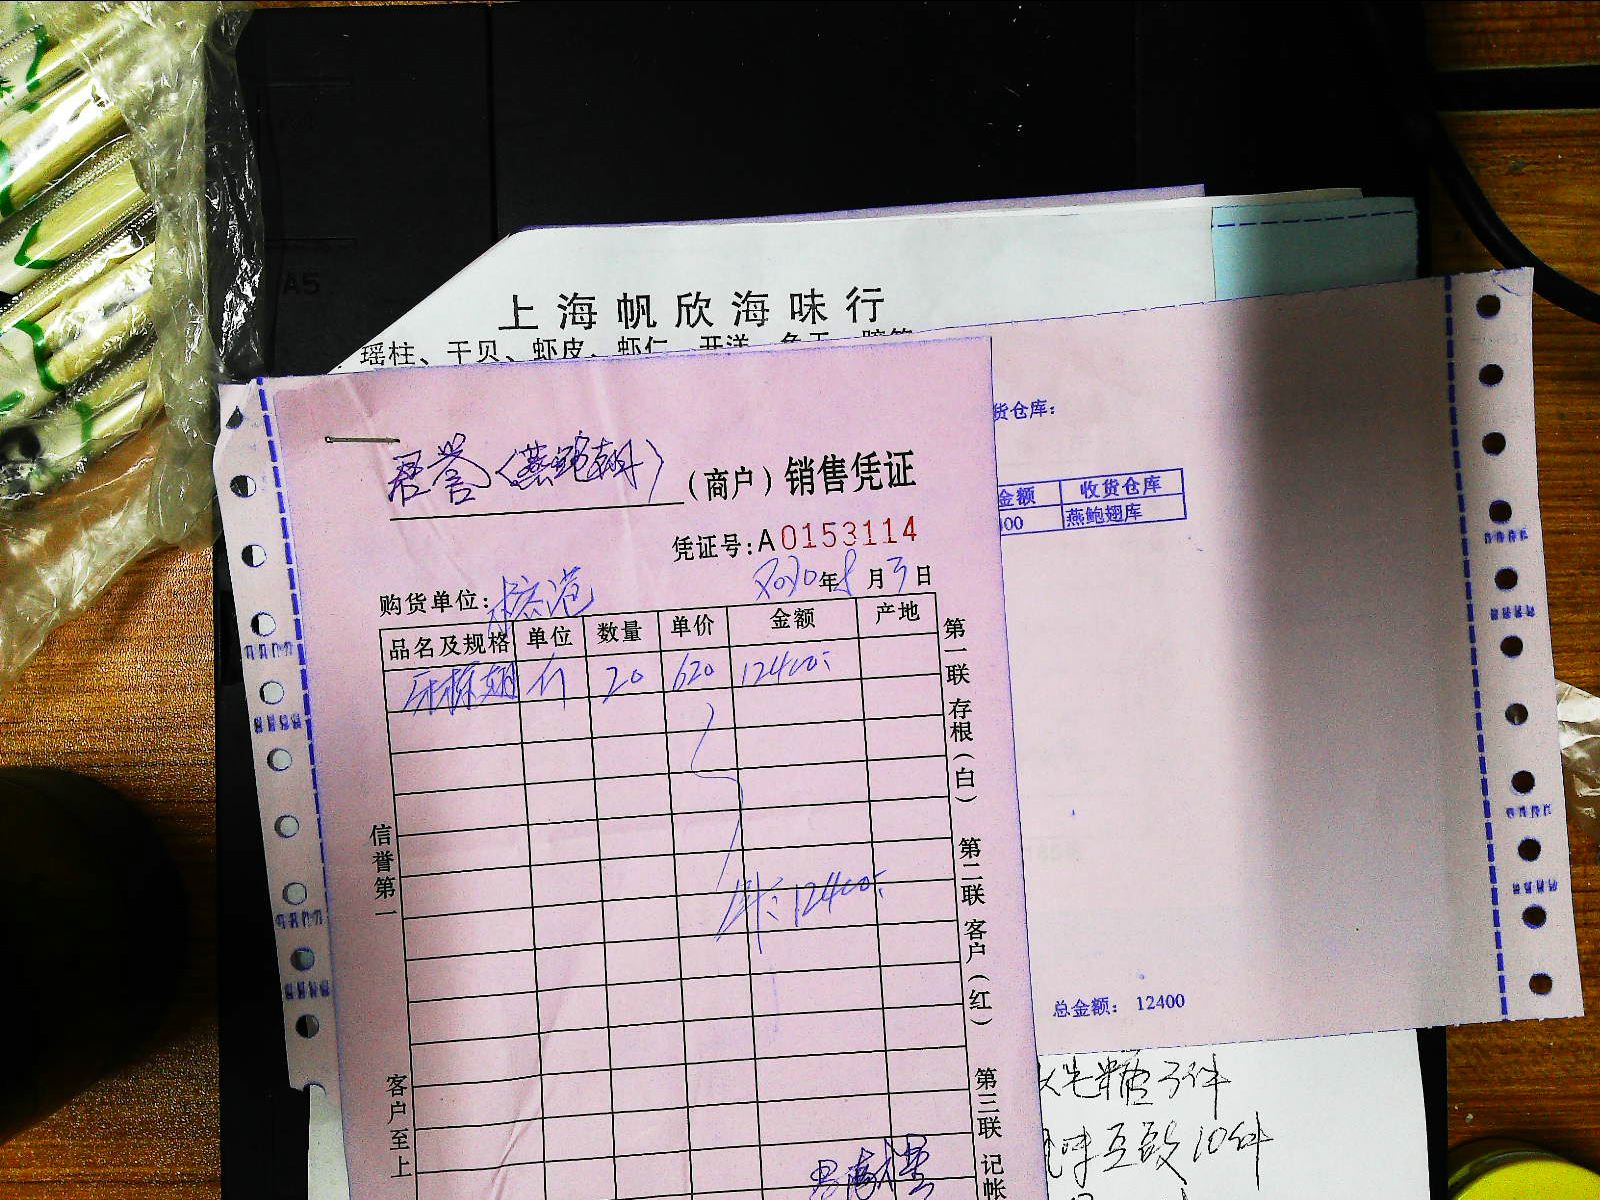 A5
上海帆欣海味行
瑶柱、干贝、虾皮、虾仁
货仓库：
金额 收货仓库
00 燕鲍翅库
君誉(燕鲍翅)(商户)销售凭证
凭证号:A0153114
2020年8月3日
购货单位:
品名及规格 单位 数量 单价 金额 产地
斤 20 620 12400
12400
信誉第一
客户至上
第一联 存根(白)
第二联 客户(红)
第三联 记帐
总金额： 12400
3件
味豆豉10件